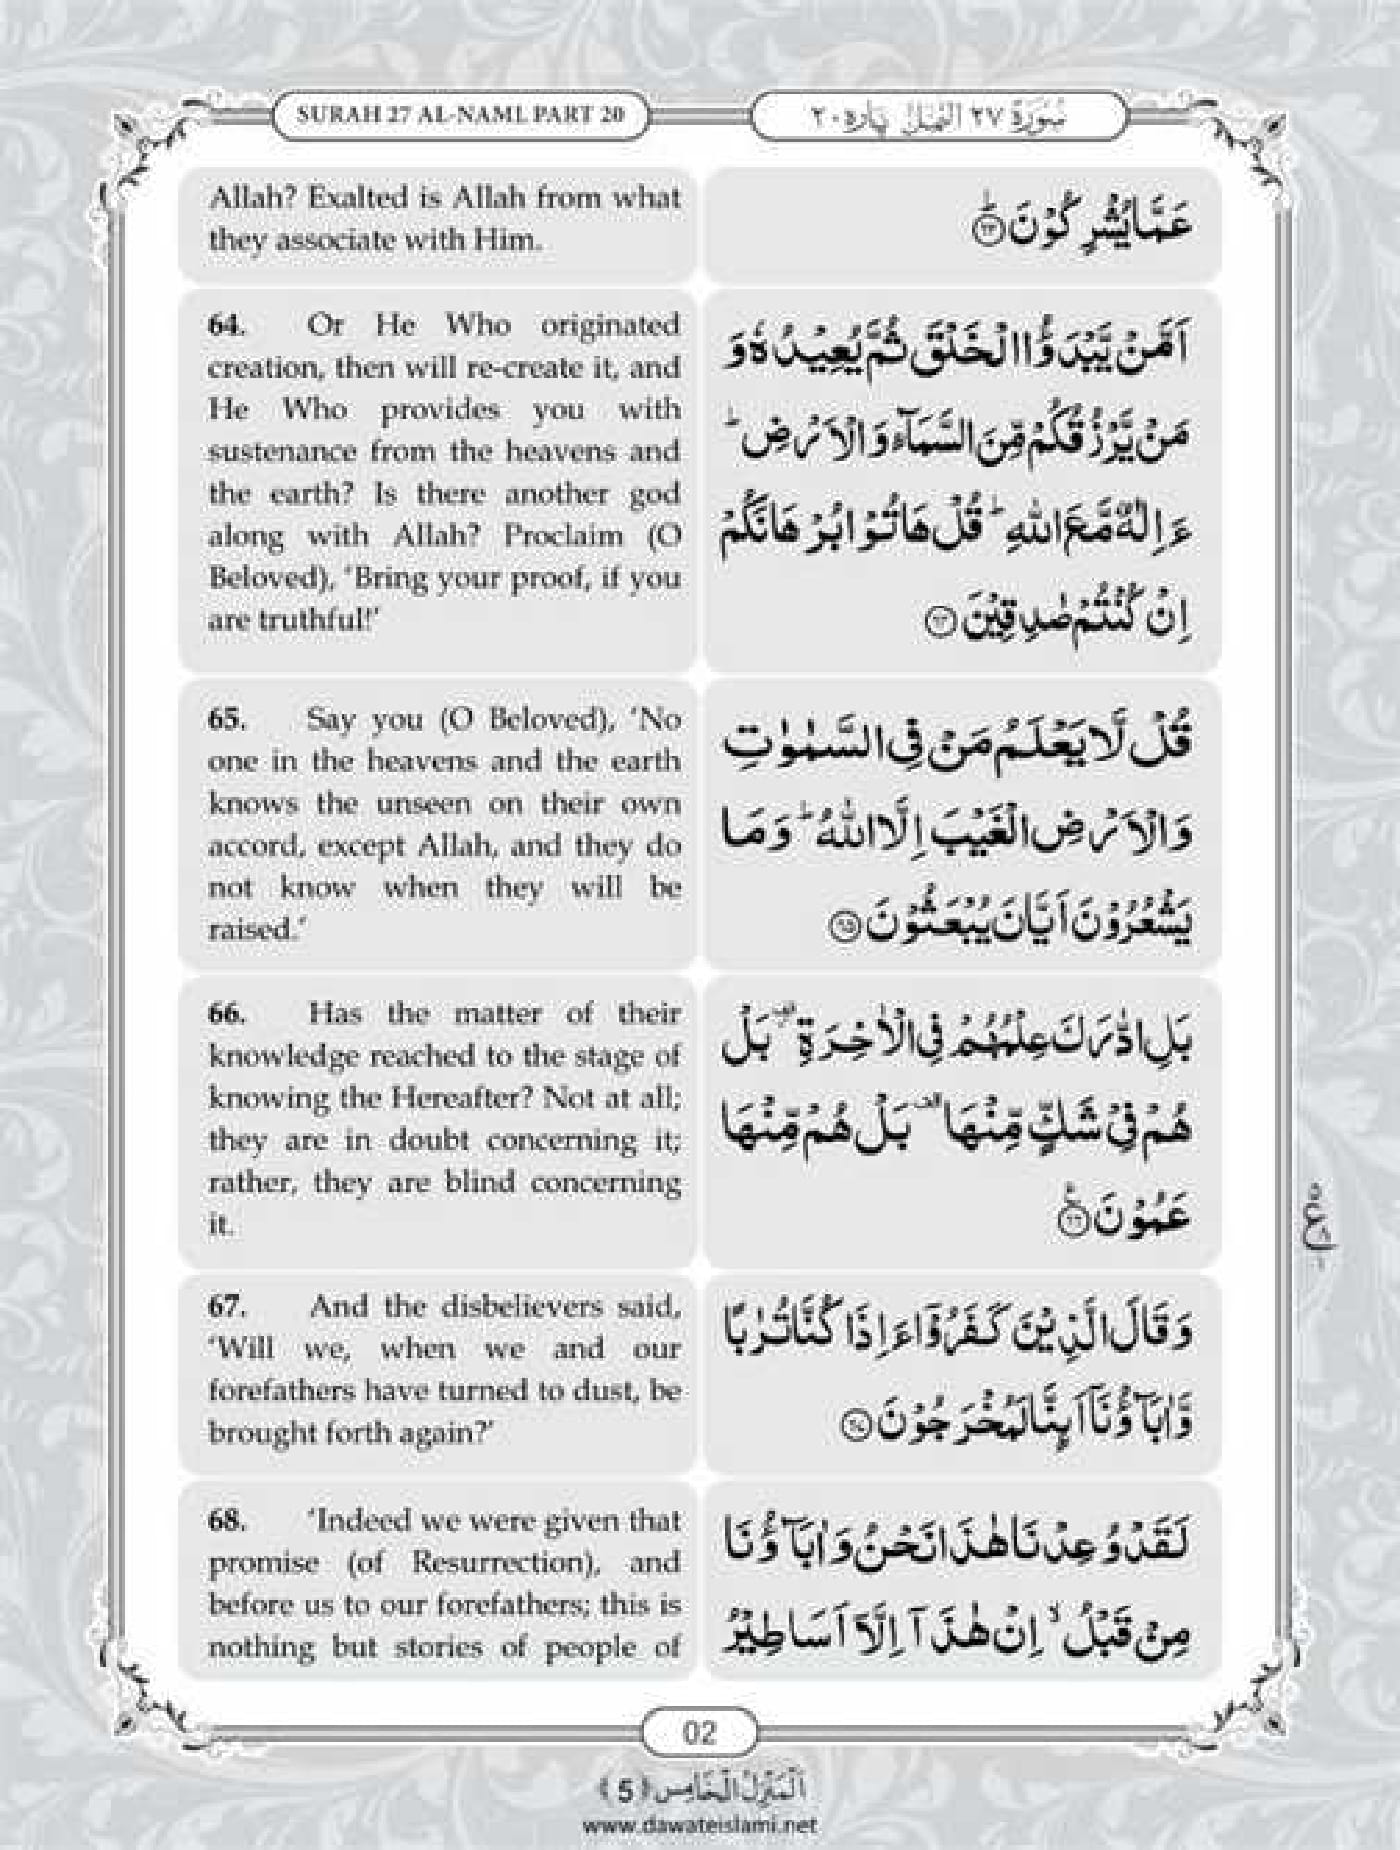 SURAH 27 AL-NAML PART 20
سُوْرَةُ ٢٧ النَّمْل پاره ٢٠
Allah? Exalted is Allah from what
they associate with Him.
عَمَّا يُشْرِكُوْنَ ؕ﴿۶۳﴾
64. Or He Who originated
creation, then will re-create it, and
He Who provides you with
sustenance from the heavens and
the earth? Is there another god
along with Allah? Proclaim (O
Beloved), ‘Bring your proof, if you
are truthful!’
اَمَّنْ یَّبْدَؤُا الْخَلْقَ ثُمَّ یُعِیْدُهٗ وَ
مَنْ یَّرْزُقُكُمْ مِّنَ السَّمَآءِ وَ الْاَرْضِ ؕ
ءَاِلٰهٌ مَّعَ اللّٰهِ ؕ قُلْ هَاتُوْا بُرْهَانَكُمْ
اِنْ كُنْتُمْ صٰدِقِیْنَ ﴿۶۴﴾
65. Say you (O Beloved), ‘No
one in the heavens and the earth
knows the unseen on their own
accord, except Allah, and they do
not know when they will be
raised.’
قُلْ لَّا یَعْلَمُ مَنْ فِی السَّمٰوٰتِ
وَ الْاَرْضِ الْغَیْبَ اِلَّا اللّٰهُ ؕ وَ مَا
یَشْعُرُوْنَ اَیَّانَ یُبْعَثُوْنَ ﴿۶۵﴾
66. Has the matter of their
knowledge reached to the stage of
knowing the Hereafter? Not at all;
they are in doubt concerning it;
rather, they are blind concerning
it.
بَلِ ادّٰرَكَ عِلْمُهُمْ فِی الْاٰخِرَةِ ۟ بَلْ
هُمْ فِیْ شَكٍّ مِّنْهَا ۟ بَلْ هُمْ مِّنْهَا
عَمُوْنَ ﴿۶۶﴾
67. And the disbelievers said,
‘Will we, when we and our
forefathers have turned to dust, be
brought forth again?’
وَ قَالَ الَّذِیْنَ كَفَرُوْۤا ءَاِذَا كُنَّا تُرٰبًا
وَّ اٰبَآؤُنَاۤ اَىِٕنَّا لَمُخْرَجُوْنَ ﴿۶۷﴾
68. ‘Indeed we were given that
promise (of Resurrection), and
before us to our forefathers; this is
nothing but stories of people of
لَقَدْ وُعِدْنَا هٰذَا نَحْنُ وَ اٰبَآؤُنَا
مِنْ قَبْلُ ۙ اِنْ هٰذَاۤ اِلَّاۤ اَسَاطِیْرُ
02
اَلْمَنْزِلُ الْخَامِس ﴿5﴾
www.dawateislami.net